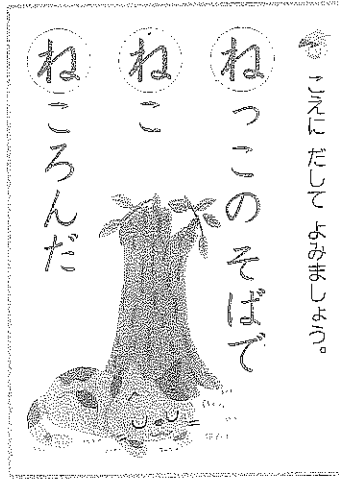 こえに だして よみましょう。
ねっこの そばで
ねこ
ねころんだ